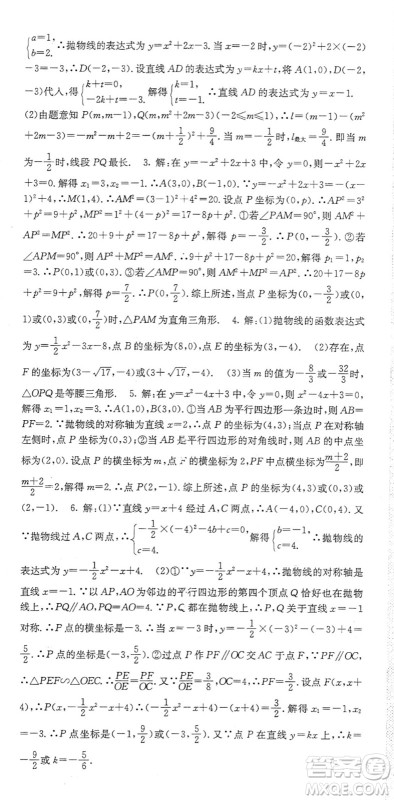 {a=1, b=2. ∴抛物线的表达式为 y=x²+2x-3. 当 x=-2 时, y=(-2)²+2×(-2)
-3=-3, ∴D(-2,-3). 设直线 AD 的表达式为 y=kx+t, 将 A(1,0), D(-2,
-3)代入, 得 {k+t=0, -2k+t=-3. 解得 {k=1, t=-1. ∴直线 AD 的表达式为 y=x-1.
(2)由题意知 P(m,m-1), Q(m,m²+2m-3)(-2≤m≤1), ∴l=(m-1)-(m²
+2m-3)=-m²-m+2=-(m+1/2)²+9/4. 当 m=-1/2 时, l最大=9/4. 即当 m
为-1/2时, 线段 PQ 最长. 3. 解:∵在 y=-x²+2x+3 中, 令 y=0, 则-x²+2x
+3=0. 解得 x₁=3, x₂=-1. ∴A(3,0), B(-1,0). ∵y=-x²+2x+3=-(x-1)²
+4, ∴M(1,4). ∴AM²=(3-1)²+4²=20. 设点 P 坐标为(0,p), 则 AP²=3²+p²
=9+p², MP²=1²+(4-p)²=17-8p+p². ①若∠PAM=90°, 则 AM²+
AP²=MP². ∴20+9+p²=17-8p+p². 解得 p=-3/2. ∴P(0,-3/2). ②若
∠APM=90°, 则 AP²+MP²=AM². ∴9+p²+17-8p+p²=20. 解得 p₁=1,
p₂=3. ∴P(0,1)或(0,3). ③若∠AMP=90°, 则 AM²+MP²=AP². ∴20+17
-8p+p²=9+p². 解得 p=7/2. ∴P(0,7/2). 综上所述, 当点 P 坐标为(0,-3/2)或
(0,1)或(0,3)或(0,7/2)时, △PAM 为直角三角形. 4. 解:(1)抛物线的函数表达式
为 y=1/2x²-3x-8, 点 B 的坐标为(8,0), 点 E 的坐标为(3,-4). (2)存在, 点
F 的坐标为(3-√17,-4)或(3+√17,-4). (3)当 m 的值为-8/3或-32/3时,
△OPQ 是等腰三角形. 5. 解:在 y=x²-4x+3 中, 令 y=0, 则 x²-4x+3=0.
解得 x=3 或 1. ∴点 A(1,0), B(3,0). ①当 AB 为平行四边形一条边时, 则 AB
=PF=2. ∵抛物线的对称轴为直线 x=2, ∴点 P 坐标为(4,3). 当点 P 在对称轴
左侧时, 点 C 的位置, 点 P 坐标为(0,3). ②当 AB 是平行四边形的对角线时, AB 中
点坐标为(2,0). 设点 P 的横坐标为 m, 点 F 的横坐标为 2, PF 中点横坐标为(m+2)/2,
即(m+2)/2=2. 解得 m=2. ∴点 P(2,-1). 综上所述, 点 P 坐标为(4,3)或(0,3)或
(2,-1). 6. 解:(1)∵直线 y=x+4 经过 A, C 两点, ∴A(-4,0), C(0,4). 又∵
抛物线过 A, C 两点, ∴{-1/2×(-4)²-4b+c=0, c=4. 解得 {b=-1, c=4. ∴抛物线的
表达式为 y=-1/2x²-x+4. (2)①∵y=-1/2x²-x+4, ∴抛物线的对称轴是
直线 x=-1. ∵以 AO 为边的平行四边形的第四个顶点 Q 恰好也在抛物
线上, ∴PQ∥AO, PQ=AO=4. ∵P, Q 都在抛物线上, ∴P, Q 关于直线 x=-1
对称. ∴P 点的横坐标是-3. ∴当 x=-3 时, y=-1/2×(-3)²-(-3)+4=
5/2. ∴P 点的坐标是(-3,5/2). ②过点 P 作 PF∥OC 交 AC 于点 F, ∵PF∥OC,
∴△PEF∽△OEC. ∴PE/OE=PF/OC.
=4). ∴-1/2x²-x+4-(x+4)=3/2. 解得 x₁=-1, x₂=-3.
∴P 点坐标是(-1,9/2)或(-3,5/2). 又∵点 P 在直线 y=kx 上, ∴k=
-9/2或 k=-5/6.